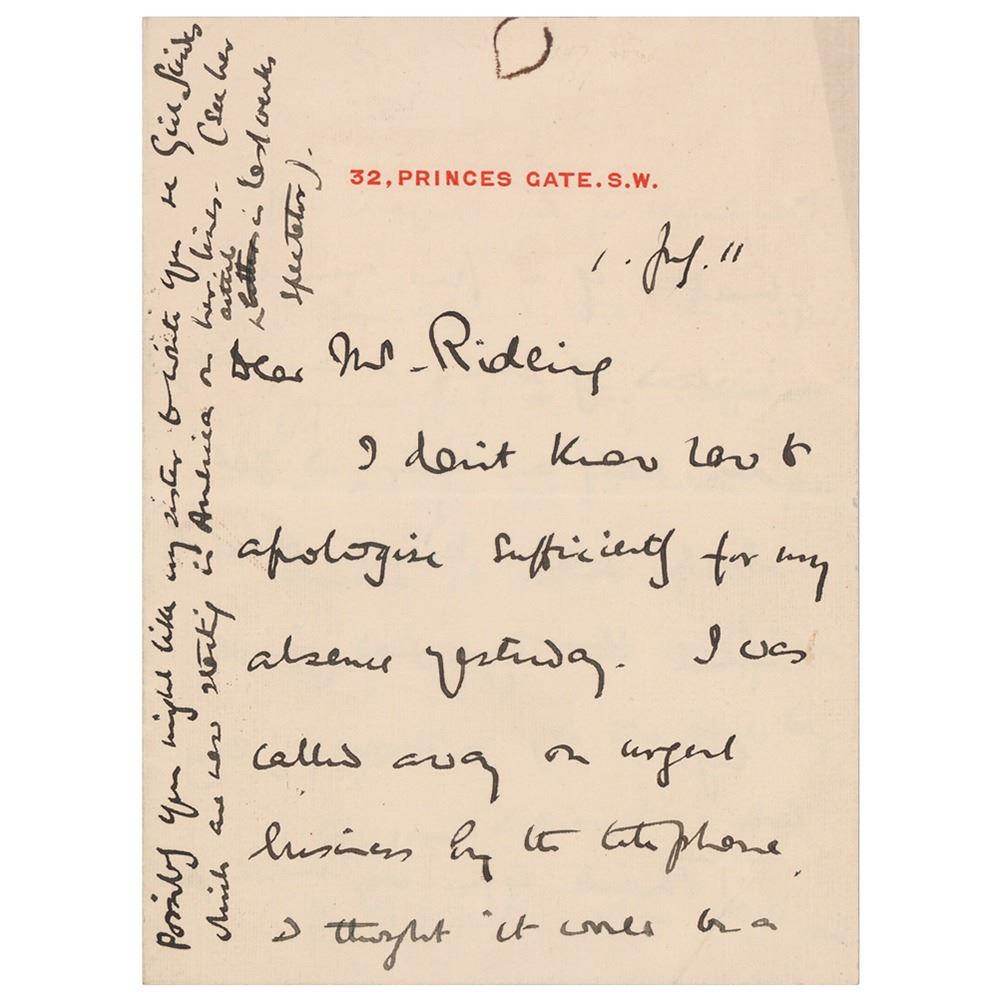 32, PRINCES GATE. S.W.
1. July. 11
Dear Mr. Rideing
I don't know how to
apologise sufficiently for my
absence yesterday. I was
called away on urgent
business by the telephone.
I thought it would be a
Possibly you might like my sister to write you re Girl Guides
which are now starting in America on her lines. (See her
article
in last weeks
Spectator).